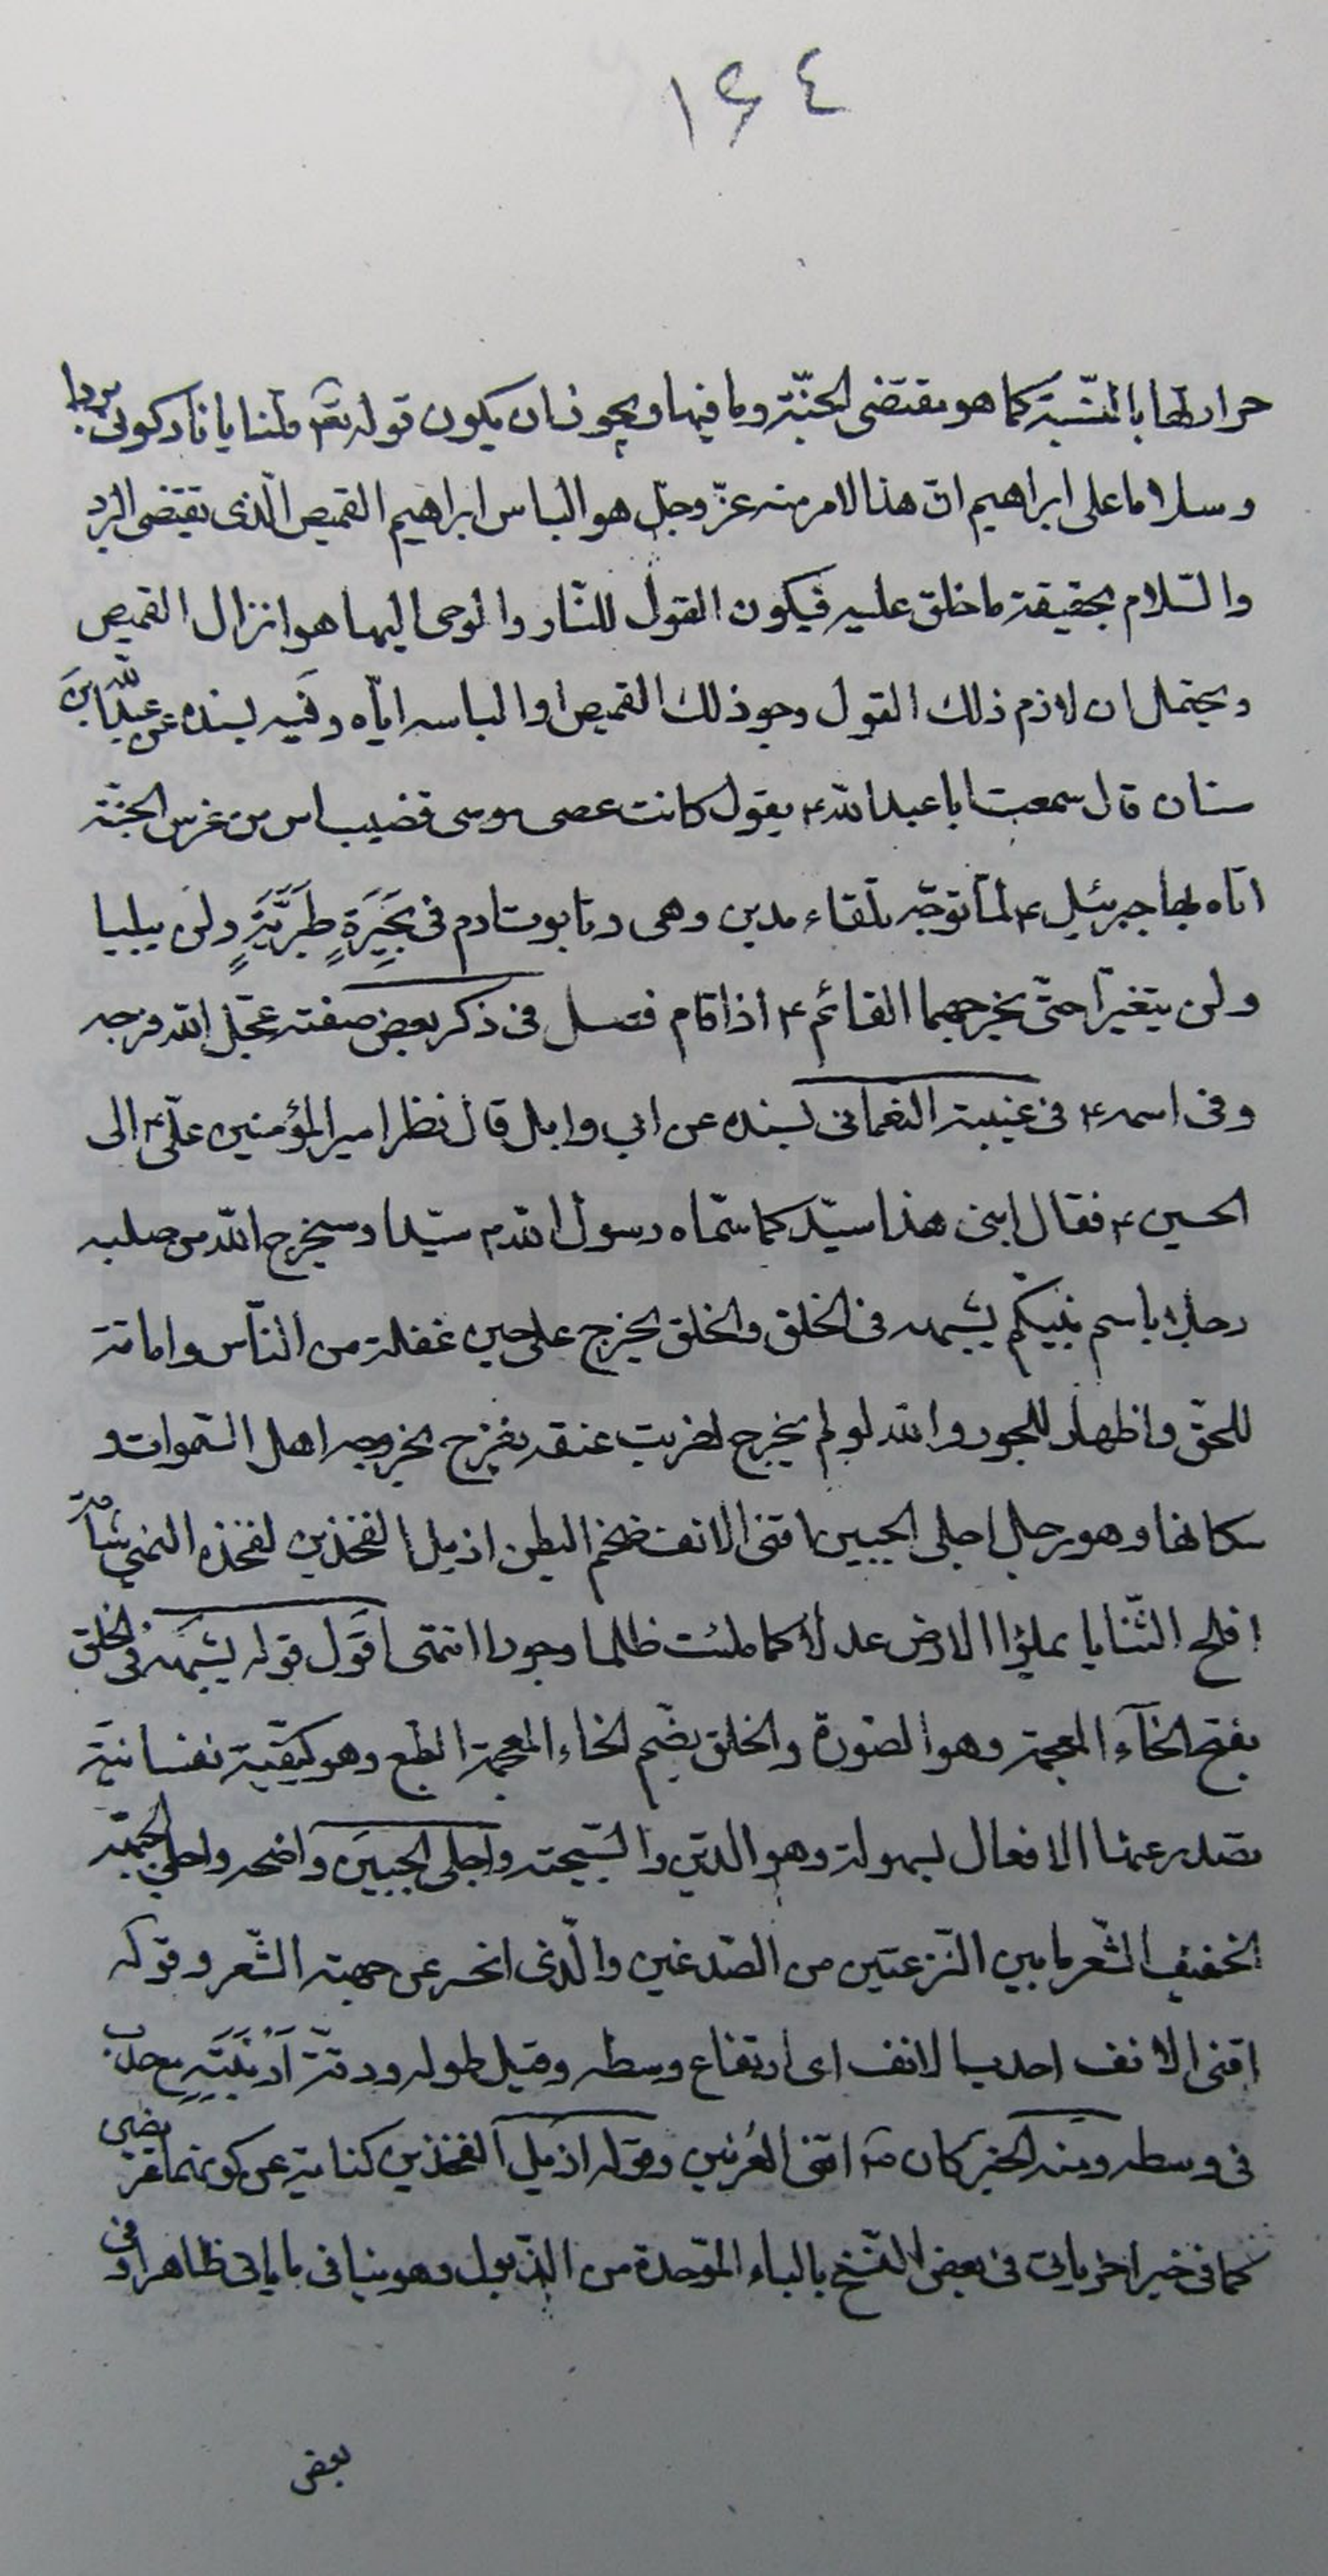 ١٦٤
حرارتها بالنسبة كما هو مقتضى الجنّة وما فيها ويجوز ان يكون قوله تعالى قلنا يا نار كونى بردا
وسلاما على ابراهيم انّ هذا الامر منه عزّ وجلّ هو الباس ابراهيم القميص الّذى يقتضى البرد
والسّلام بحقيقة ما خلق عليه فيكون القول للنّار والوحى اليها هو انزال القميص
ويحتمل ان لازم ذلك القول وجود ذلك القميص او الباسه ايّاه وفيه بسنده عن عبد الله بن
سنان قال سمعت ابا عبد الله ع يقول كانت عصى موسى قضيب اس من غرس الجنّة
اتاه بها جبرئيل ع لمّا توجّه تلقاء مدين وهى وتابوت ادم فى بحيرة طبريّة ولن يبليا
ولن يتغيّرا حتّى يخرجهما القائم ع اذا قام فصل فى ذكر بعض صفته عجّل الله فرجه
وفى اسمه ع فى غيبة النعمانى بسنده عن ابى وايل قال نظر امير المؤمنين علىّ ع الى
الحسين ع فقال ابنى هذا سيّد كما سمّاه رسول الله ص سيّدا وسيخرج الله من صلبه
رجلا باسم نبيّكم يشبهه فى الخلق والخلق يخرج على حين غفلة من النّاس واماتة
للحقّ واظهار للجور والله لو لم يخرج لضربت عنقه يفرح بخروجه اهل السّموات و
سكانها وهو رجل اجلى الجبين اقنى الانف ضخم البطن اذيل الفخذين لفخذه اليمنى شامة
افلج الثّنايا يملؤا الارض عدلا كما ملئت ظلما وجورا انتهى اقول قوله يشبهه فى الخلق
بفتح الخآء المعجمة وهو الصّورة والخلق بضم الخاء المعجمة الطّبع وهو كيفيّة نفسانيّة
تصدر عنها الافعال بسهولة وهو الدّين والسّجيّة واجلى الجبين واضحه واجلى الجبهة
الخفيف الشّعر ما بين النّزعتين من الصّدغين والّذى انحسر عن جبهته الشّعر وقوله
اقنى الانف احدب الانف اى ارتفاع وسطه وقيل طوله ودقّة ارنبته مع حدب
فى وسطه ومنه الخبر كان ص اقنى العرنين وقوله اذيل الفخذين كناية عن كونهما عريضين
كما فى خبر اخر ياتى فى بعض النّسخ بالباء الموّحدة من الذّبول وهو ينافى ما ياتى ظاهرا وفى
بعض